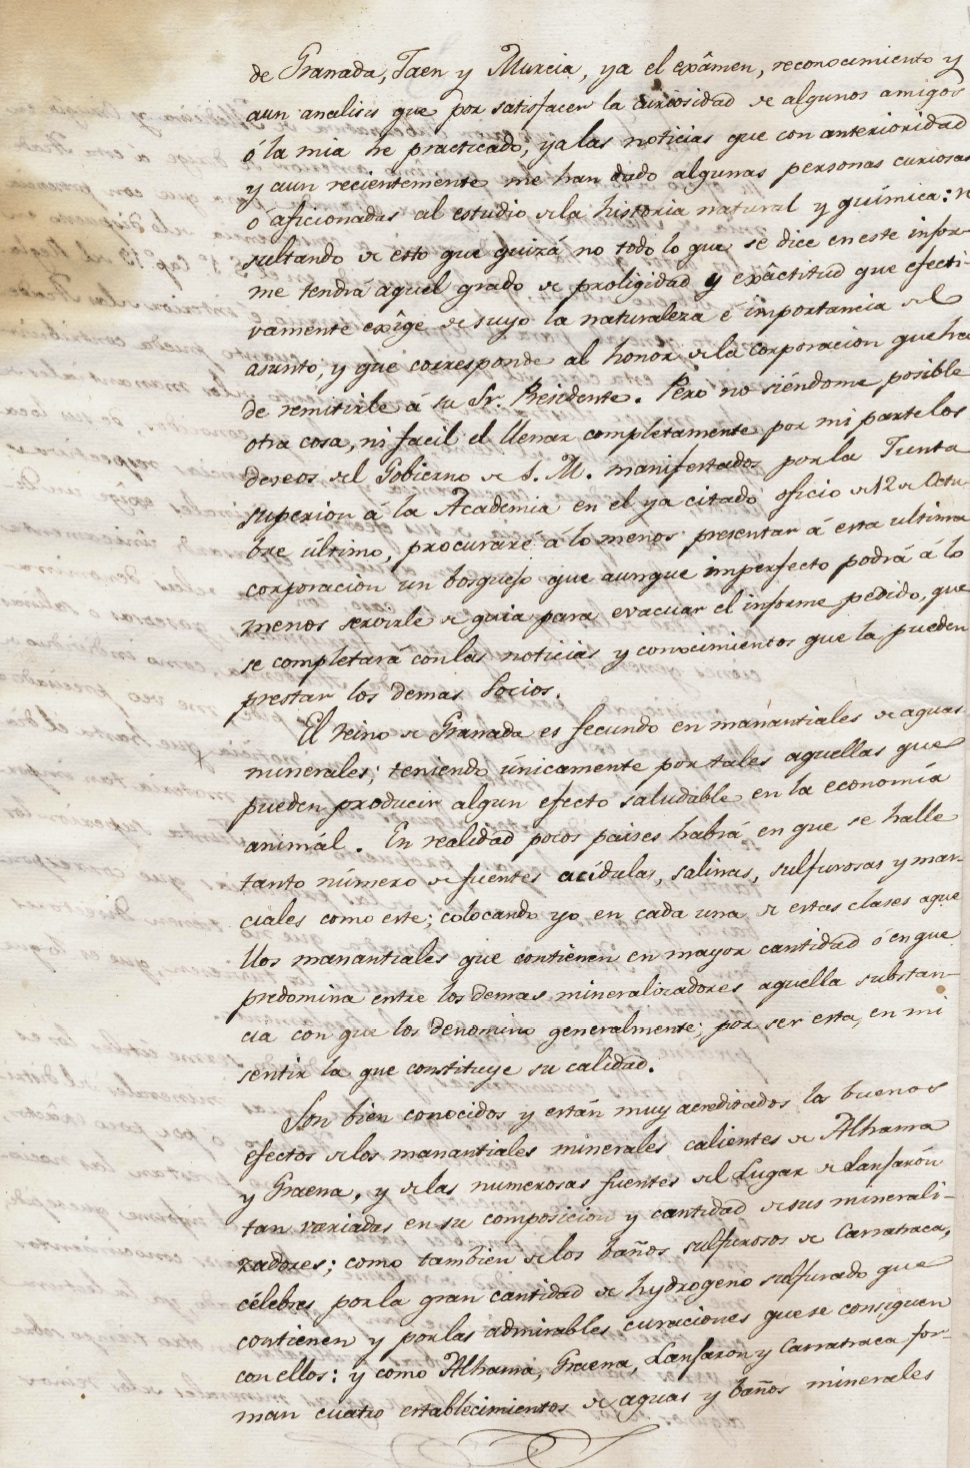 de Granada, Jaen y Murcia, ya el exâmen, reconocimiento y
aun analisis que por satisfacer la curiosidad de algunos amigos
ó la mia he practicado, ya las noticias que con anterioridad
y aun recientemente me han dado algunas personas curiosas
ó aficionadas al estudio de la historia natural y química: re
sultando de esto que quizá no todo lo que se dice en este infor-
me tendrá aquel grado de proligidad y exâctitud que efecti-
vamente exîge de suyo la naturaleza é importancia del
asunto, y que corresponde al honor de la corporacion que ha
de remitirle á su Sr. Presidente. Pero no siéndome posible
otra cosa, ni facil el llenar completamente por mi parte los
deseos del Gobierno de S. M. manifestados por la Junta
superior á la Academia en el ya citado oficio de 12 de Octu-
bre último, procuraré á lo menos presentar á esta ultima
corporacion un bosquejo que aunque imperfecto podrá á lo
menos servirle de guia para evacuar el informe pedido, que
se completará con las noticias y conocimientos que la pueden
prestar los demas Socios.
El reino de Granada es fecundo en manantiales de aguas
minerales; teniendo únicamente por tales aquellas que
pueden producir algun efecto saludable en la economía
animál. En realidad pocos paises habrá en que se halle
tanto número de fuentes acídulas, salinas, sulfurosas y mar-
ciales como este; colocando yo en cada una de estas clases aque
llos manantiales que contienen en mayor cantidad ó en que
predomina entre los demas mineralizadores aquella substan-
cia con que los denomino generalmente; por ser esta, en mi
sentir la que constituye su calidad.
Son bien conocidos y están muy acreditados los buenos
efectos de los manantiales minerales calientes de Alhama
y Graena, y de las numerosas fuentes del Lugar de Lanjarón
tan variadas en su composicion y cantidad de sus minerali-
zadores; como tambien de los baños sulfurosos de Carratraca,
célebres por la gran cantidad de hydrogeno sulfurado que
contienen y por las admirables curaciones que se consiguen
con ellos: y como Alhama, Graena, Lanjaron y Carratraca for-
man cuatro establecimientos de aguas y baños minerales